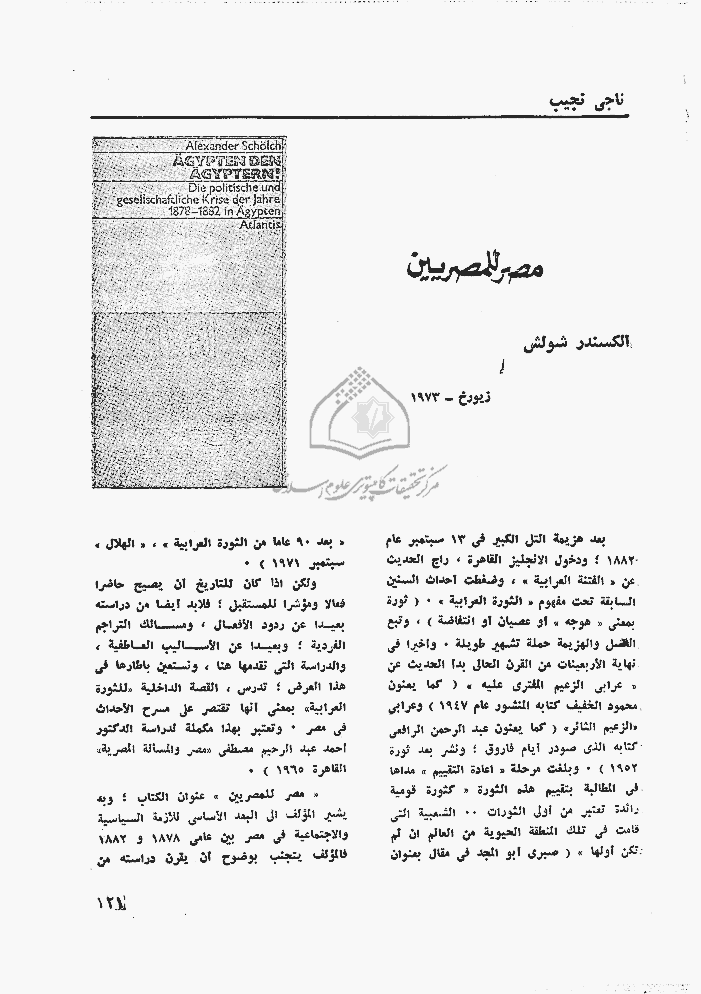 ناجى نجيب
Alexander Schölch
ÄGYPTEN DEN
ÄGYPTERN!
Die politische und
gesellschaftliche Krise der Jahre
1878-1882 in Ägypten
Atlantis
مصر للمصريين
الكسندر شولش
زيورخ ـ ١٩٧٣
مركز تحقيقات كامپيوترى علوم اسلامى
بعد هزيمة التل الكبير فى ١٣ سبتمبر عام
١٨٨٢ ؛ ودخول الانجليز القاهرة ، راج الحديث
عن « الفتنة العرابية » ، وضغطت احداث السنين
السابقة تحت مفهوم « الثورة العرابية » ٠ ( ثورة
بمعنى « هوجه » او عصيان او انتفاضة ) ، وتبع
الفشل والهزيمة حملة تشهير طويلة ٠ واخيرا فى
نهاية الأربعينات من القرن الحالى بدا الحديث عن
« عرابى الزعيم المفترى عليه » ( كما يعنون
محمود الخفيف كتابه المنشور عام ١٩٤٧ ) وعرابى
«الزعيم الثائر» ( كما يعنون عبد الرحمن الرافعى
كتابه الذى صودر أيام فاروق ؛ ونشر بعد ثورة
١٩٥٢ ) ٠ وبلغت مرحلة « اعادة التقييم » مداها
فى المطالبة بتقييم هذه الثورة « كثورة قومية
رائدة تعتبر من أولى الثورات ٠٠ الشعبية التى
قامت فى تلك المنطقة الحيوية من العالم ان لم
تكن أولها » ( صبرى أبو المجد فى مقال بعنوان
« بعد ٩٠ عاما من الثورة العرابية » ، « الهلال »
سبتمبر ١٩٧١ ) ٠
ولكن اذا كان للتاريخ أن يصبح حاضرا
فعالا ومؤشرا للمستقبل ؛ فلابد أيضا من دراسته
بعيدا عن ردود الأفعال ، ومسالك التراجم
الفردية ؛ وبعيدا عن الأساليب العاطفية ،
والدراسة التى نقدمها هنا ، ونستعين باطارها فى
هذا العرض ؛ تدرس ، القصة الداخلية «للثورة
العرابية» بمعنى انها تقتصر على مسرح الأحداث
فى مصر ٠ وتعتبر بهذا مكملة لدراسة الدكتور
احمد عبد الرحيم مصطفى «مصر والمسألة المصرية»
القاهرة ١٩٦٥ ) ٠
« مصر للمصريين » عنوان الكتاب ؛ وبه
يشير المؤلف الى البعد الأساسى للأزمة السياسية
والاجتماعية فى مصر بين عامى ١٨٧٨ و ١٨٨٢
فالمؤلف يتجنب بوضوح أن يقرن دراسته من